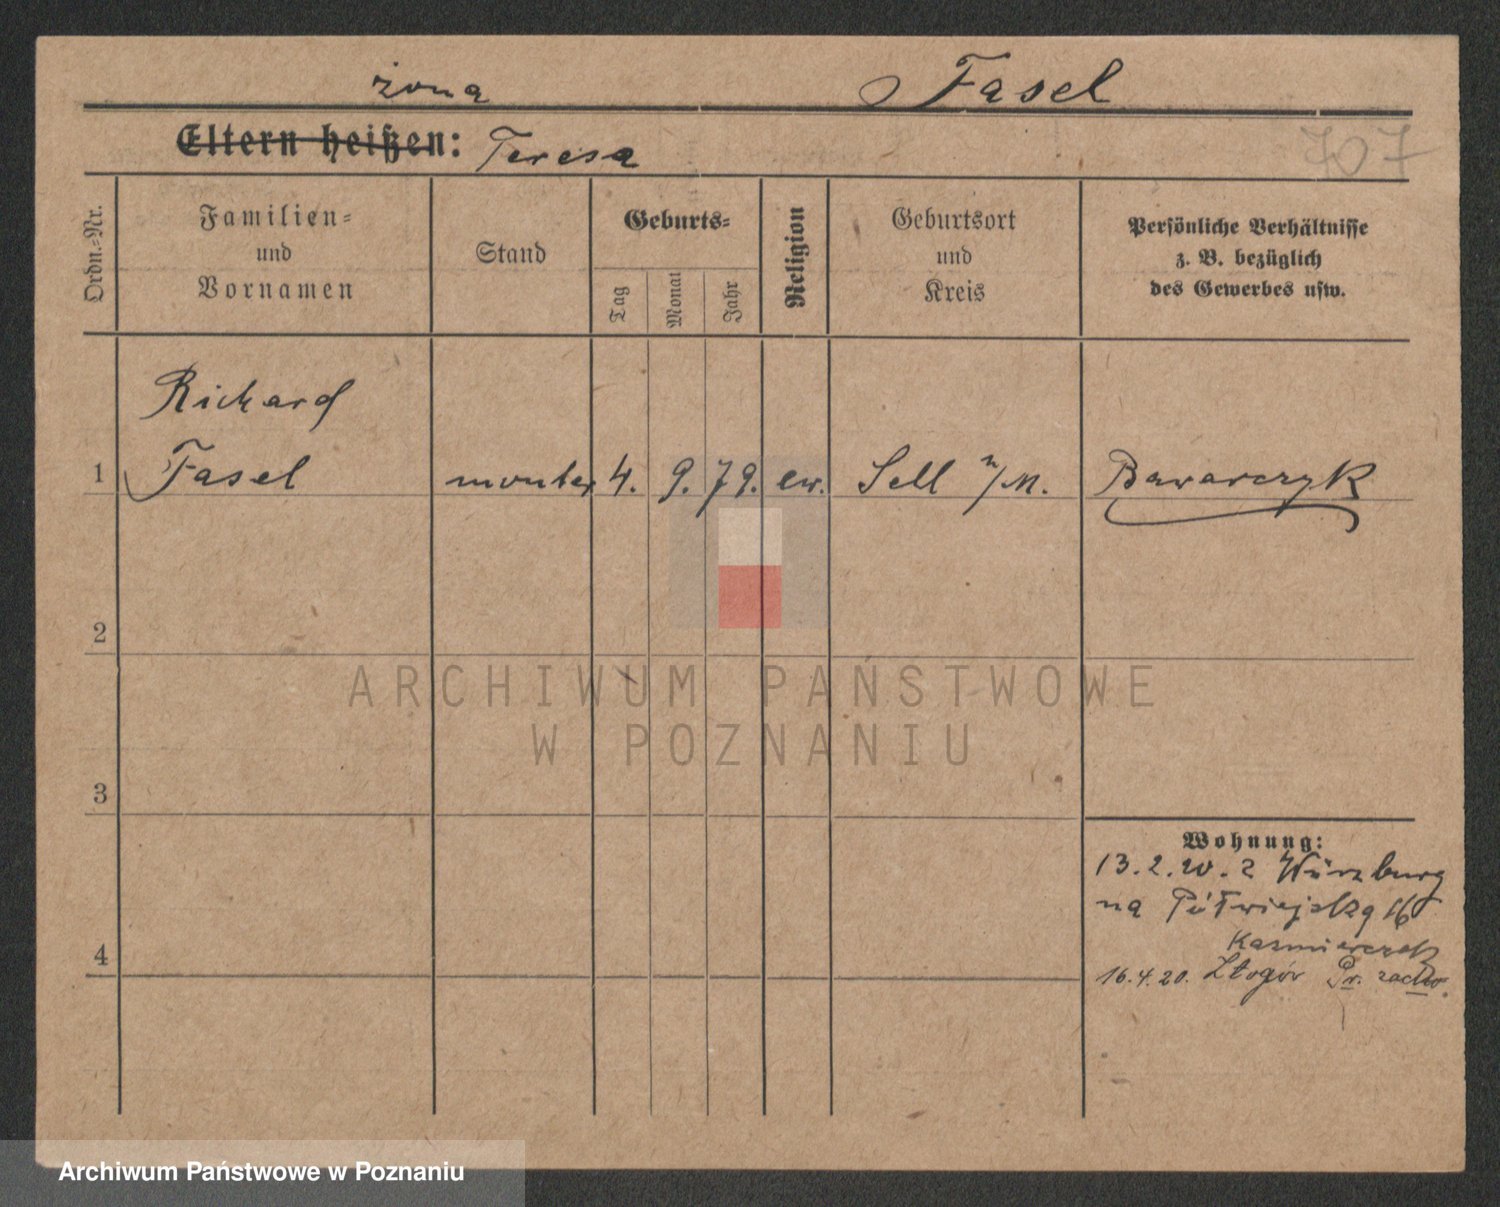 żona Fasel
Eltern heißen: Teresa
707
Ordn.-Nr.
Familien-
und
Vornamen
Stand
Geburts-
Tag
Monat
Jahr
Religion
Geburtsort
und
Kreis
Persönliche Verhältnisse
z. B. bezüglich
des Gewerbes usw.
Richard
1 Fasel monter 4. 9. 79. ew. Sell n/M. Bawarczyk
2
3
4
Wohnung:
13.2.20. z Würzburg
na Półwiejską 16
Kazmierczak
16.4.20. Złogór Pr. zach.
ARCHIWUM PAŃSTWOWE
W POZNANIU
Archiwum Państwowe w Poznaniu